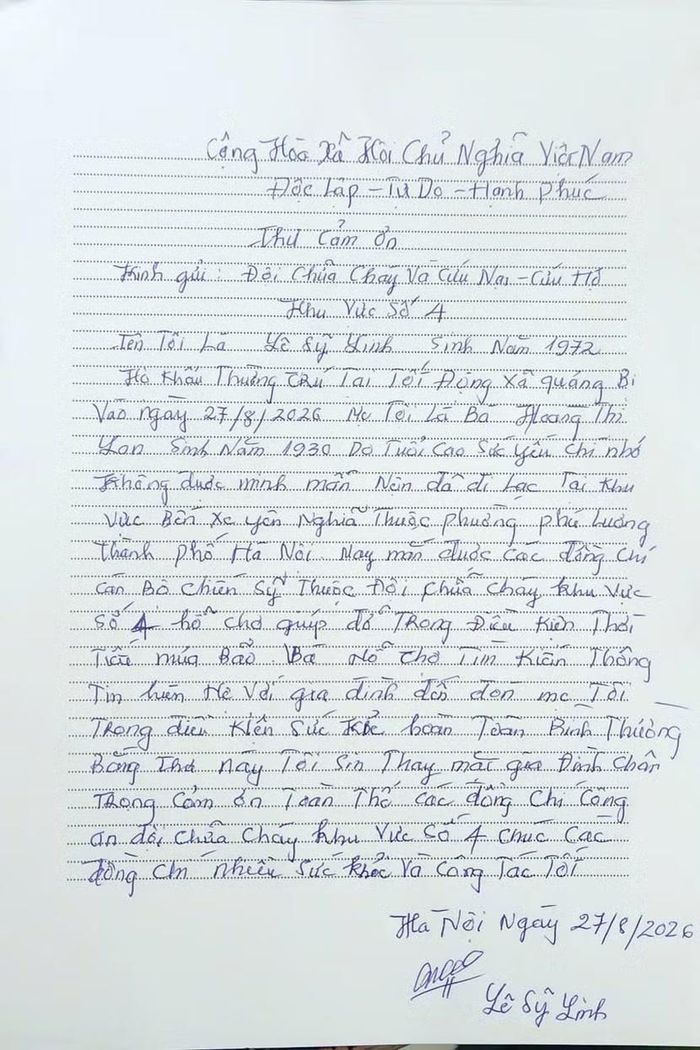 Cộng Hòa Xã Hôi Chủ Nghĩa Việt Nam
Độc Lập - Tự Do - Hạnh Phúc
Thư Cảm Ơn
Kính gửi : Đội Chữa Cháy Và Cứu Nạn - Cứu Hộ
Khu Vực Số 4
Tên Tôi Là Lê Sỹ Linh Sinh Năm 1972
Hộ Khẩu Thường Trú Tại Tối Động Xã quảng Bị
Vào ngày 27/8/2026 Mẹ Tôi Là Bà Hoang Thị
Lan Sinh Năm 1930 Do Tuổi Cao Sức yếu Chí nhớ
Không được minh mẫn Nên đã đi Lạc Tại Khu
Vực Bến Xe yên Nghĩa Thuộc phường phú Lương
Thành phố Hà Nôi. May mắn được các đồng chí
Cán Bô Chiến Sỹ Thuộc Đội Chữa Cháy Khu Vực
Số 4 hỗ chợ giúp đỡ Trong Điều Kiện Thời
Tiết mưa Bão. Và Hỗ Chợ Tìm Kiến Thông
Tin hiên Hê Với gia đình đốn đón mẹ Tôi
Trong điều Kiên Sức Khẻ hoàn Toàn Bình Thường
Bằng Thư này Tôi Sin Thay mặt gia Đình Chân
Trọng Cảm ơn Toàn Thể các đồng Chí Công
an đội Chữa Cháy khu Vực Số 4 Chúc Các
đồng Chí nhiều Sức khỏe Và Công Tác Tốt
Hà Nội Ngày 27/8/2026
Lê Sỹ Linh